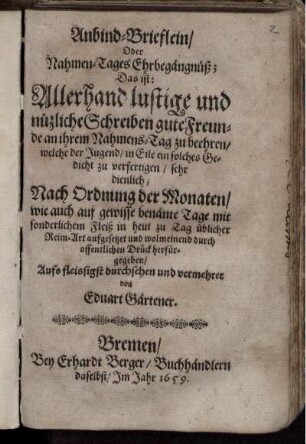 2
Anbind-Brieflein/
Oder
Nahmen-Tages Ehrbegängnüß;
Das ist:
Allerhand lustige und
nüzliche Schreiben gute Freun-
de an ihrem Nahmens-Tag zu beehren/
welche der Jugend/ in Eile ein solches Ge-
dicht zu verfertigen/ sehr
dienlich;
Nach Ordnung der Monaten/
wie auch auf gewisse benämte Tage mit
sonderlichem Fleiß in heut zu Tag üblicher
Reim-Art aufgesetzet und wolmeinend durch
offentlichen Drück herfür-
gegeben/
Aufs fleissigst durchsehen und vermehret
von
Eduart Gärtener.
Bremen/
Bey Erhardt Berger/ Buchhändlern
daselbst/ Im Jahr 1659.